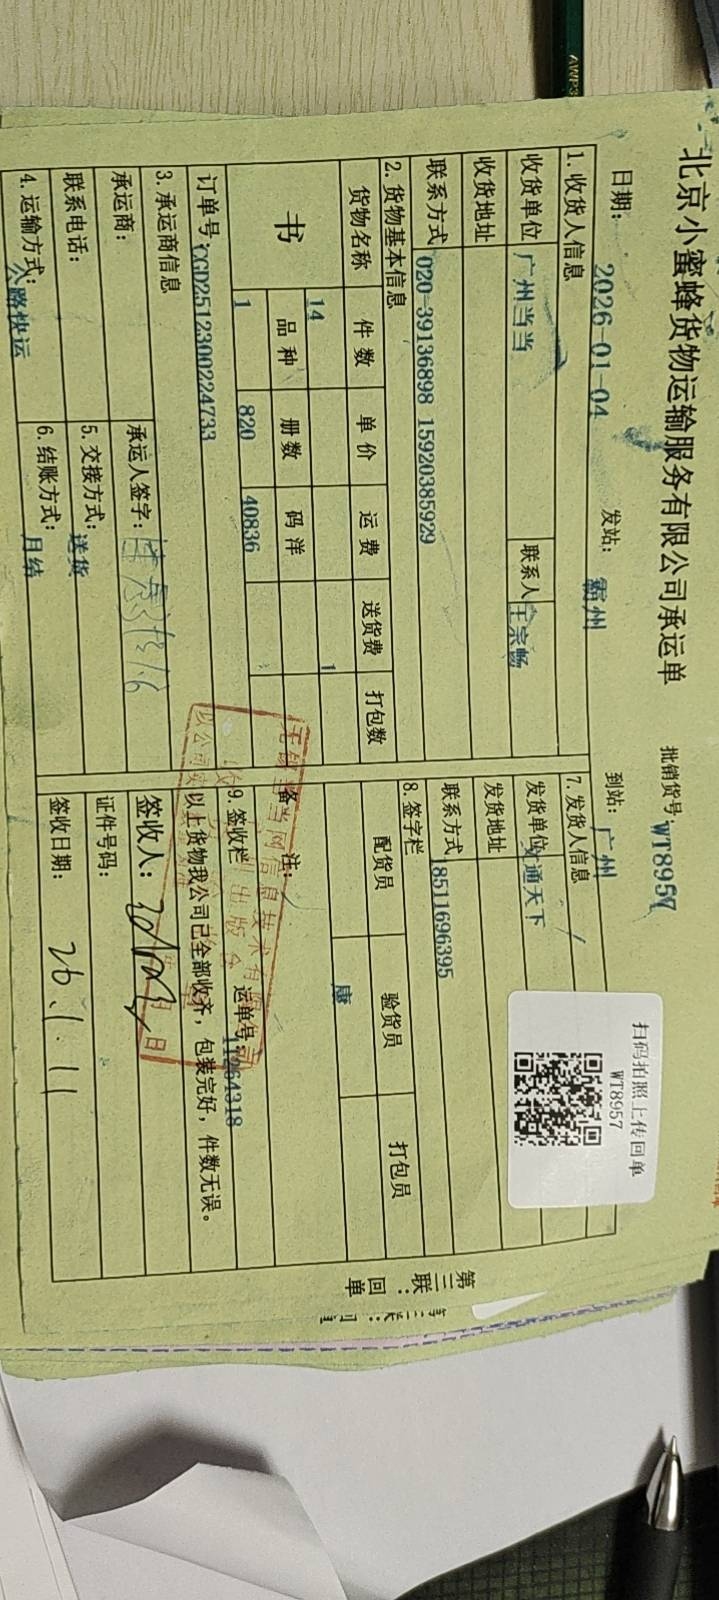 北京小蜜蜂货物运输服务有限公司承运单
批销货号:WT8957
日期: 2026-01-04 发站: 霸州 到站: 广州
1. 收货人信息
收货单位 广州当当 联系人 王宗畅
收货地址
联系方式 020-39136898 15920385929
2. 货物基本信息
货物名称 件数 单价 运费 送货费 打包数
书 14 1
品种 册数 码洋
1 820 40836
订单号:CGD2512300224733
3. 承运商信息
承运商: 承运人签字:
联系电话: 5. 交接方式: 送货
4. 运输方式: 公路快运 6. 结账方式: 月结
7. 发货人信息
发货单位 文通天下
发货地址
联系方式 18511696395
8. 签字栏
配货员 验货员 打包员
康
备注:
9. 签收栏 运单号:11264318
以上货物我公司已全部收齐，包装完好，件数无误。
签收人:
证件号码:
签收日期: 26.1.11
第三联：回单
扫码拍照上传回单
WT8957
当当网信息技术有限公司